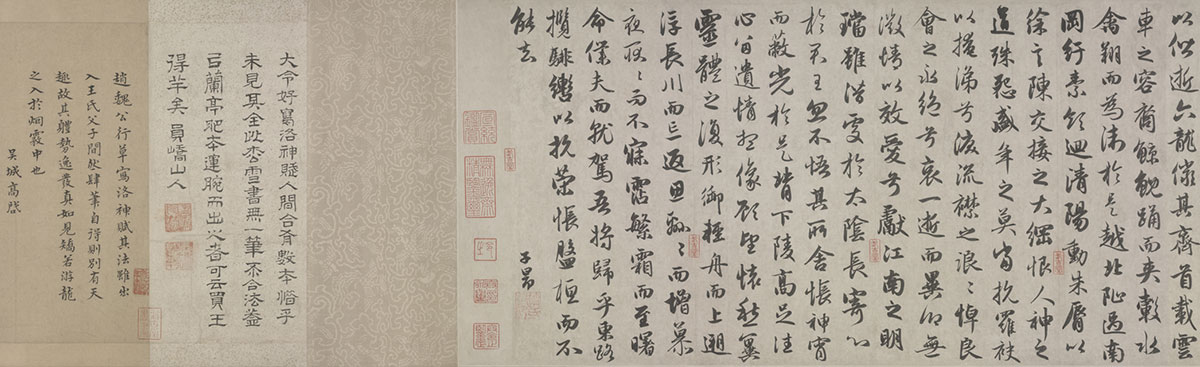 以偕逝六龍儼其齊首載雲
車之容裔鯨鯢踊而夾轂水
禽翔而為衛於是越北沚過南
岡紆素領迴清陽動朱脣以
徐言陳交接之大綱恨人神之
道殊怨盛年之莫當抗羅袂
以掩涕兮淚流襟之浪〻悼良
會之永絕兮哀一逝而異鄉無
微情以效愛兮獻江南之明
璫雖潛處於太陰長寄心
於君王忽不悟其所舍悵神宵
而蔽光於是背下陵高足往
心留遺情想像顧望懷愁冀
靈體之復形御輕舟而上遡
浮長川而忘返思綿〻而增慕
夜耿〻而不寐霑繁霜而至曙
命僕夫而就駕吾將歸乎東路
攬騑轡以抗策悵盤桓而不
能去
子昂
大令好寫洛神賦人間合有數本惜乎
未見其全此松雪書無一筆不合法蓋
以蘭亭肥本運腕而出之者可云買王
得羊矣 員嶠山人
趙魏公行草寫洛神賦其法雖出
入王氏父子間然肆筆自得則別有天
趣故其體勢逸發真如見矯若游龍
之入於烟霧中也
吳城高啓